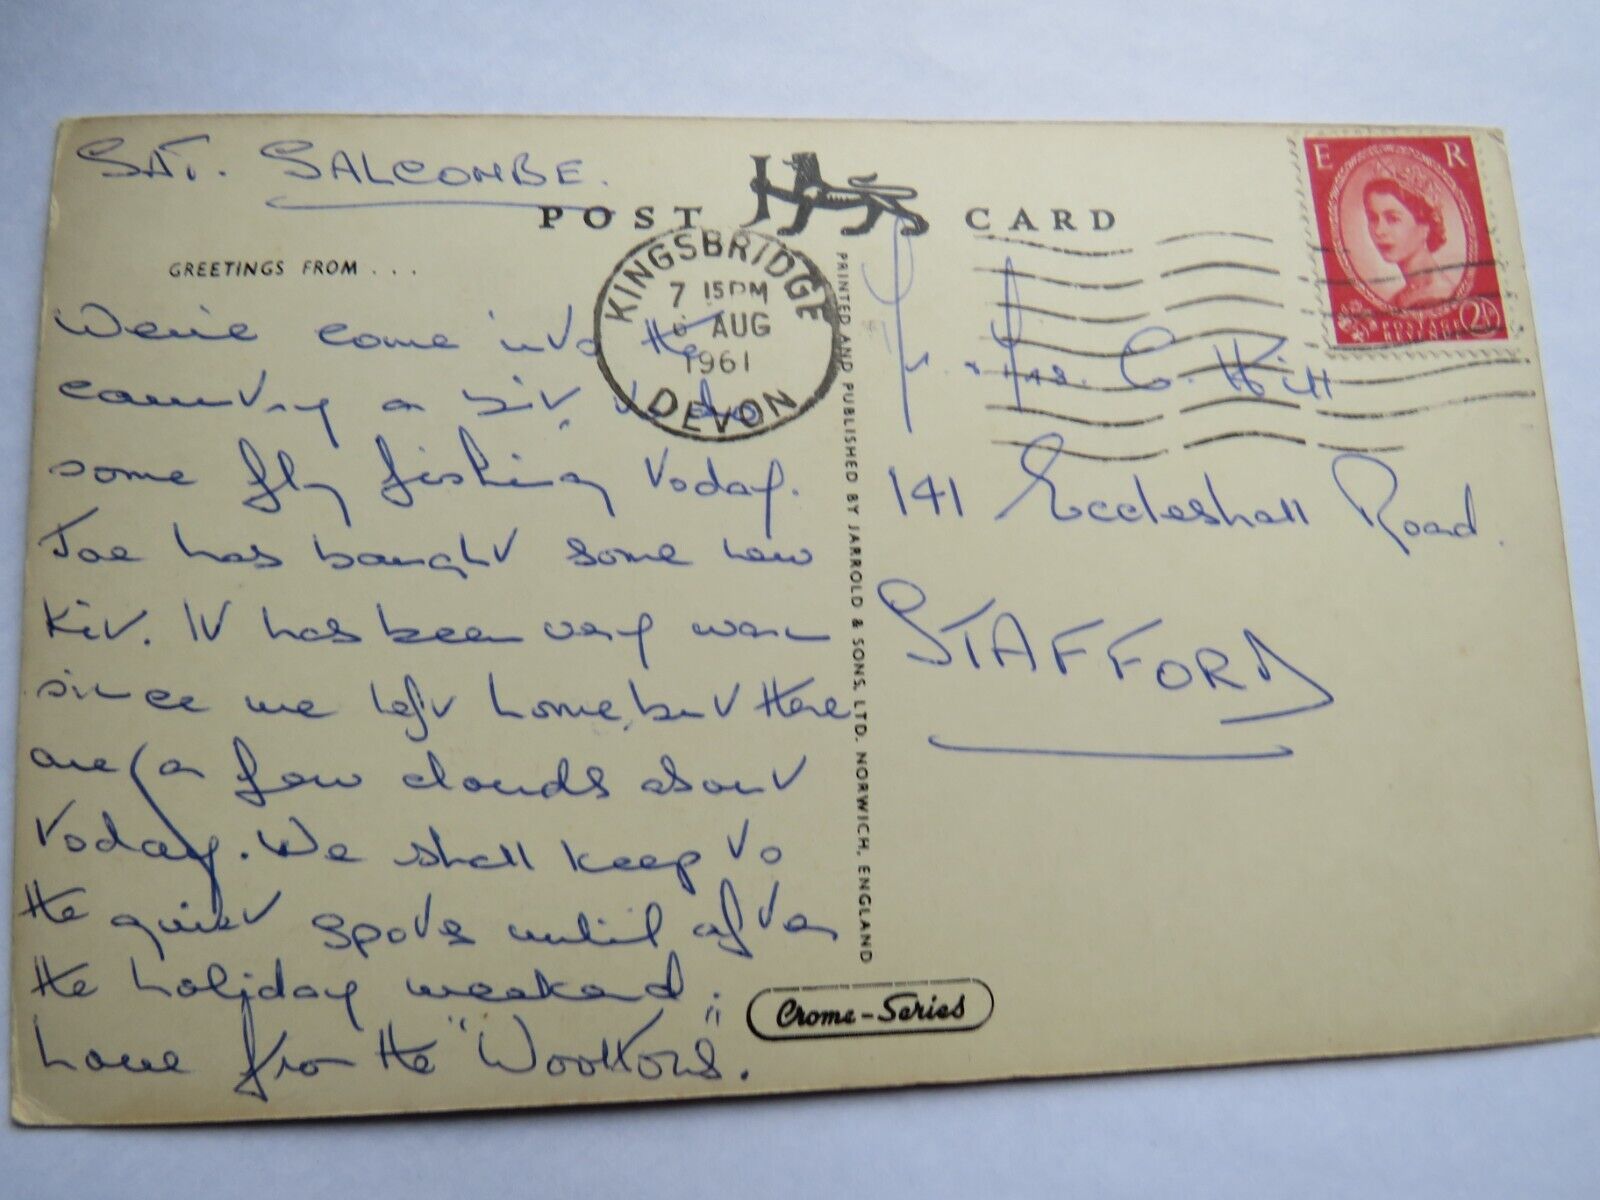 SAT. SALCOMBE.
POST CARD
GREETINGS FROM . . .
We've come into the
country a bit, to do
some fly fishing today.
Joe has bought some new
kit. It has been very warm
since we left home, but there
are a few clouds about
today. We shall keep to
the quiet spots until after
the holiday weekend.
Love from the "Woottons".
KINGSBRIDGE
7 15 PM
AUG
1961
DEVON
PRINTED AND PUBLISHED BY JARROLD & SONS, LTD. NORWICH, ENGLAND
E R
POSTAGE
REVENUE
Mrs. C. Hill
141 Eccleshall Road.
STAFFORD
Crome-Series